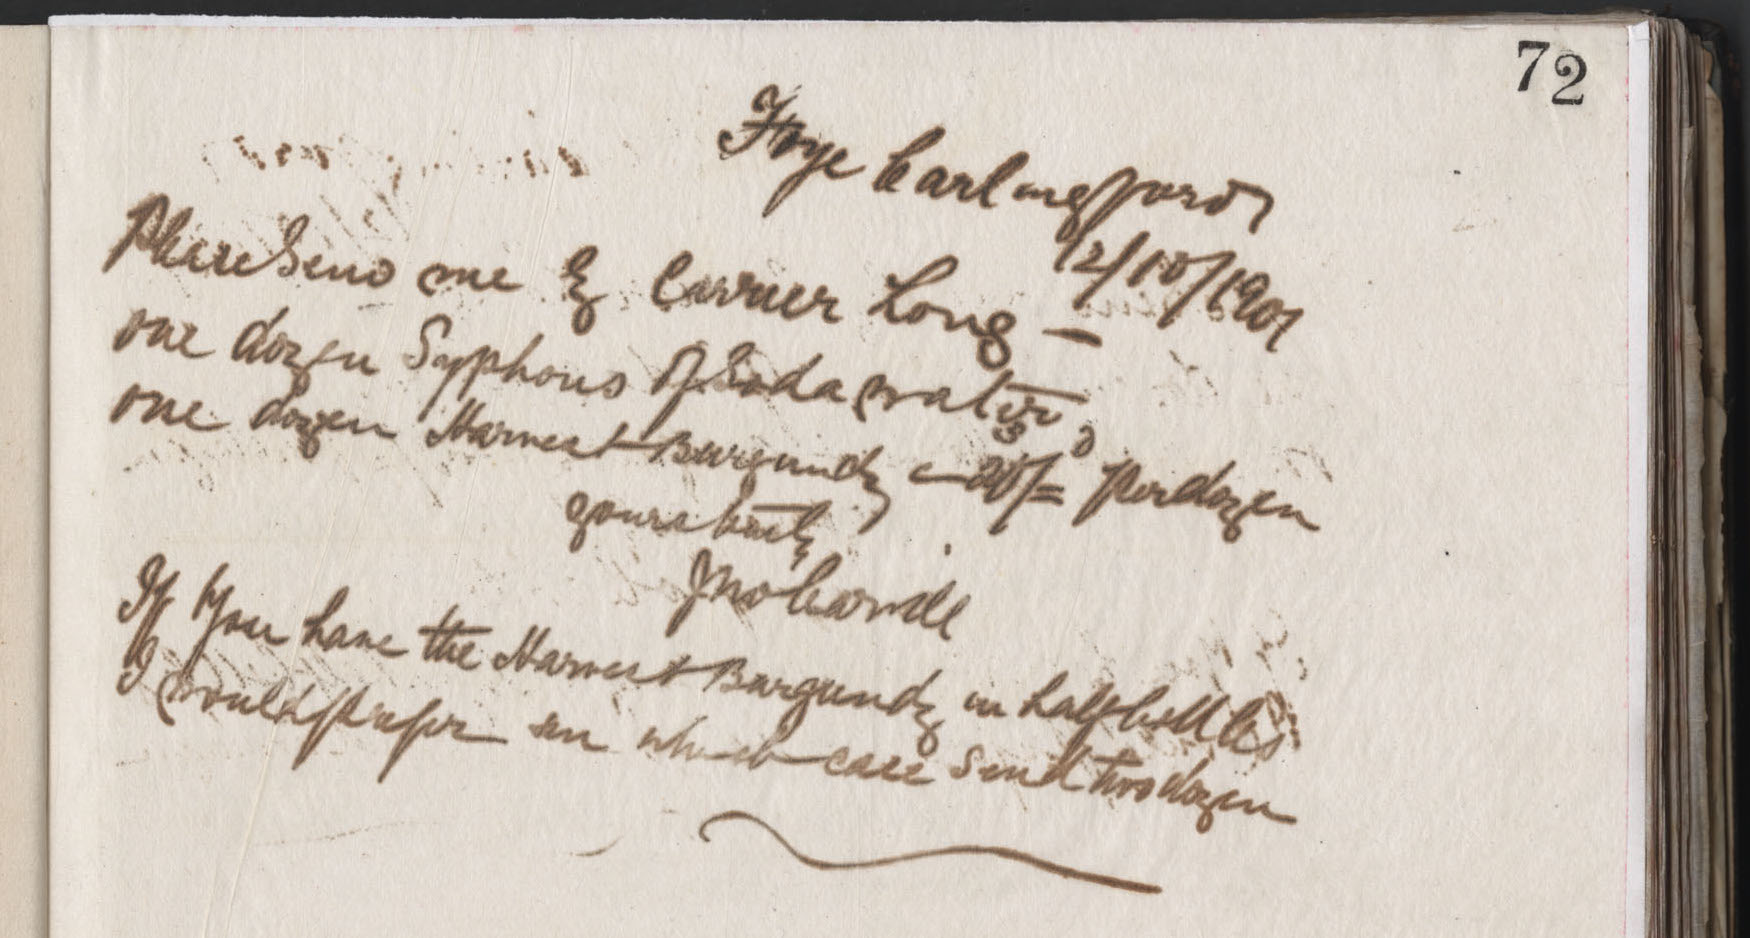 72
Foye Carlingford
12/10/1901
Please Send me By Carrier Long —
one dozen Syphons of Soda water
one dozen Harvest Burgundy — 20/= per dozen
yours truly
Jno
If you have the Harvest Burgundy in half bottles
I would prefer in which case send two dozen